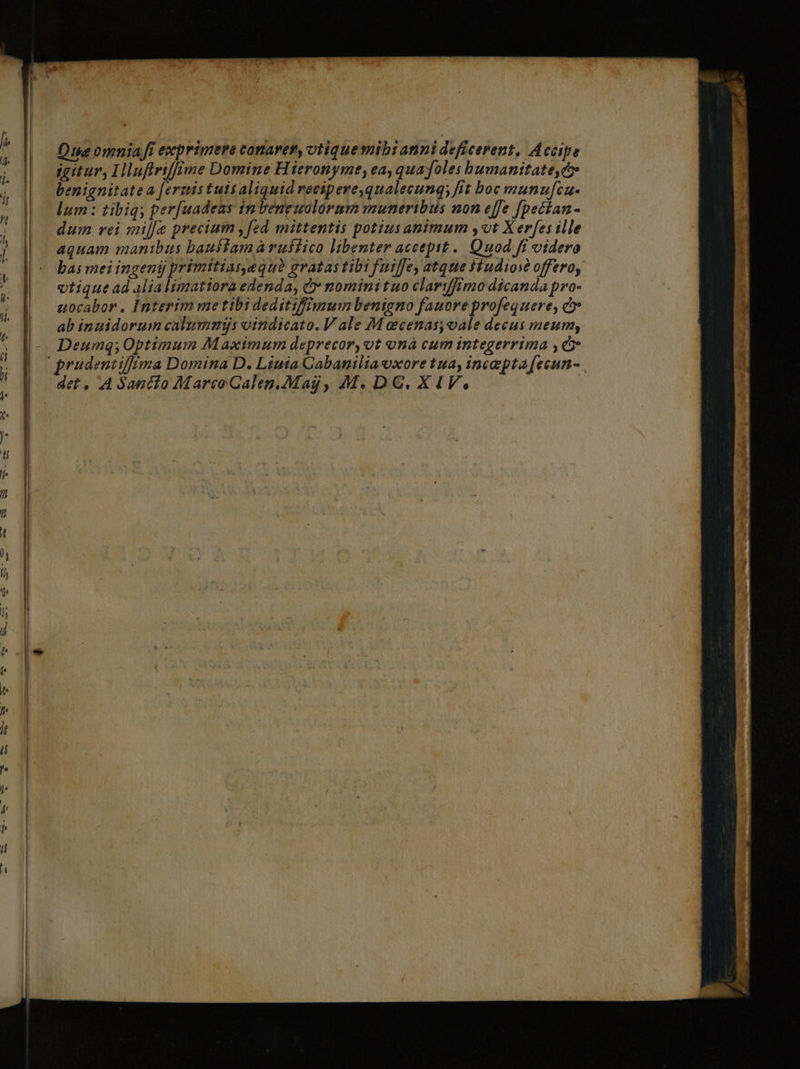 Quæ omnia ſi exprimere conarer, vtique mihi anni deficerent. Accipe
igitur, Illuſtriſſime Domine Hieronyme, ea, qua ſoles humanitate, &
benignitate a ſeruis tuis aliquid recipere, qualecunq; ſit hoc munuſcu-
lum: tibiq; perſuadeas in beneuolorum muneribus non eſſe ſpectan-
dum rei miſſæ precium, ſed mittentis potius animum, vt Xerſes ille
aquam manibus hauſtam à ruſtico libenter accepit. Quod ſi videro
has mei ingenij primitias, æquè gratas tibi fuiſſe, atque ſtudiosè offero,
vtique ad alia limatiora edenda, & nomini tuo clariſſimo dicanda pro-
uocabor. Interim me tibi deditiſſimum benigno fauore proſequere, &
ab inuidorum calumnijs vindicato. Vale Mœcenas, vale decus meum,
Deumq; Optimum Maximum deprecor, vt vnà cum integerrima, &
prudentiſſima Domina D. Liuia Cabanilia vxore tua, incœpta ſecun-
det. A Sancto Marco Calen. Maij, M. DC. XIV.